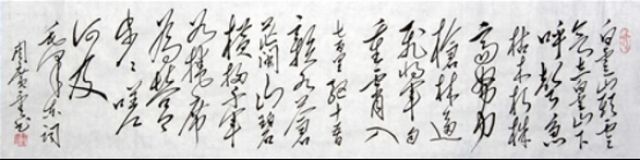 白云山头云
欲立白云山下
呼声急
枯木朽株
齐努力
枪林逼
飞将军自
重霄入
七百里驱十五日
赣水苍
茫闽山碧
横扫千军
如卷席
为营
步步嗟
何及
毛泽东词